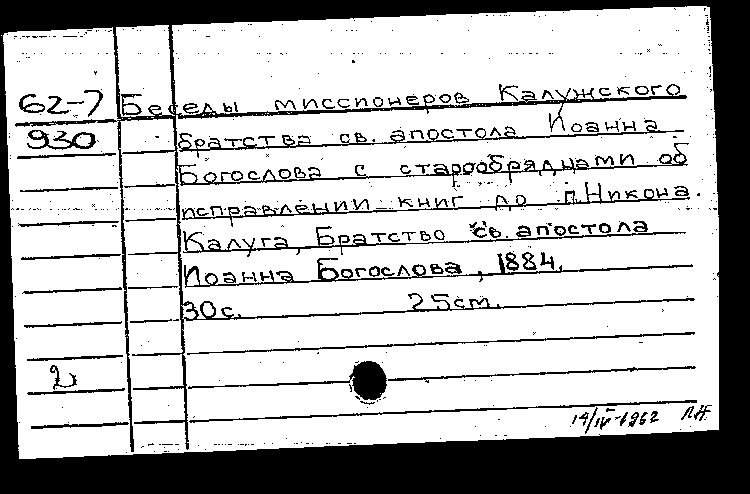 62-7 Беседы миссионеров Калужского
930 братства св. апостола Иоанна
Богослова с старообрядцами об
исправлении книг до п.Никона.
Калуга, Братство св. апостола
Иоанна Богослова, 1884.
30с. 25cm.
14/IV-1962 ЛН